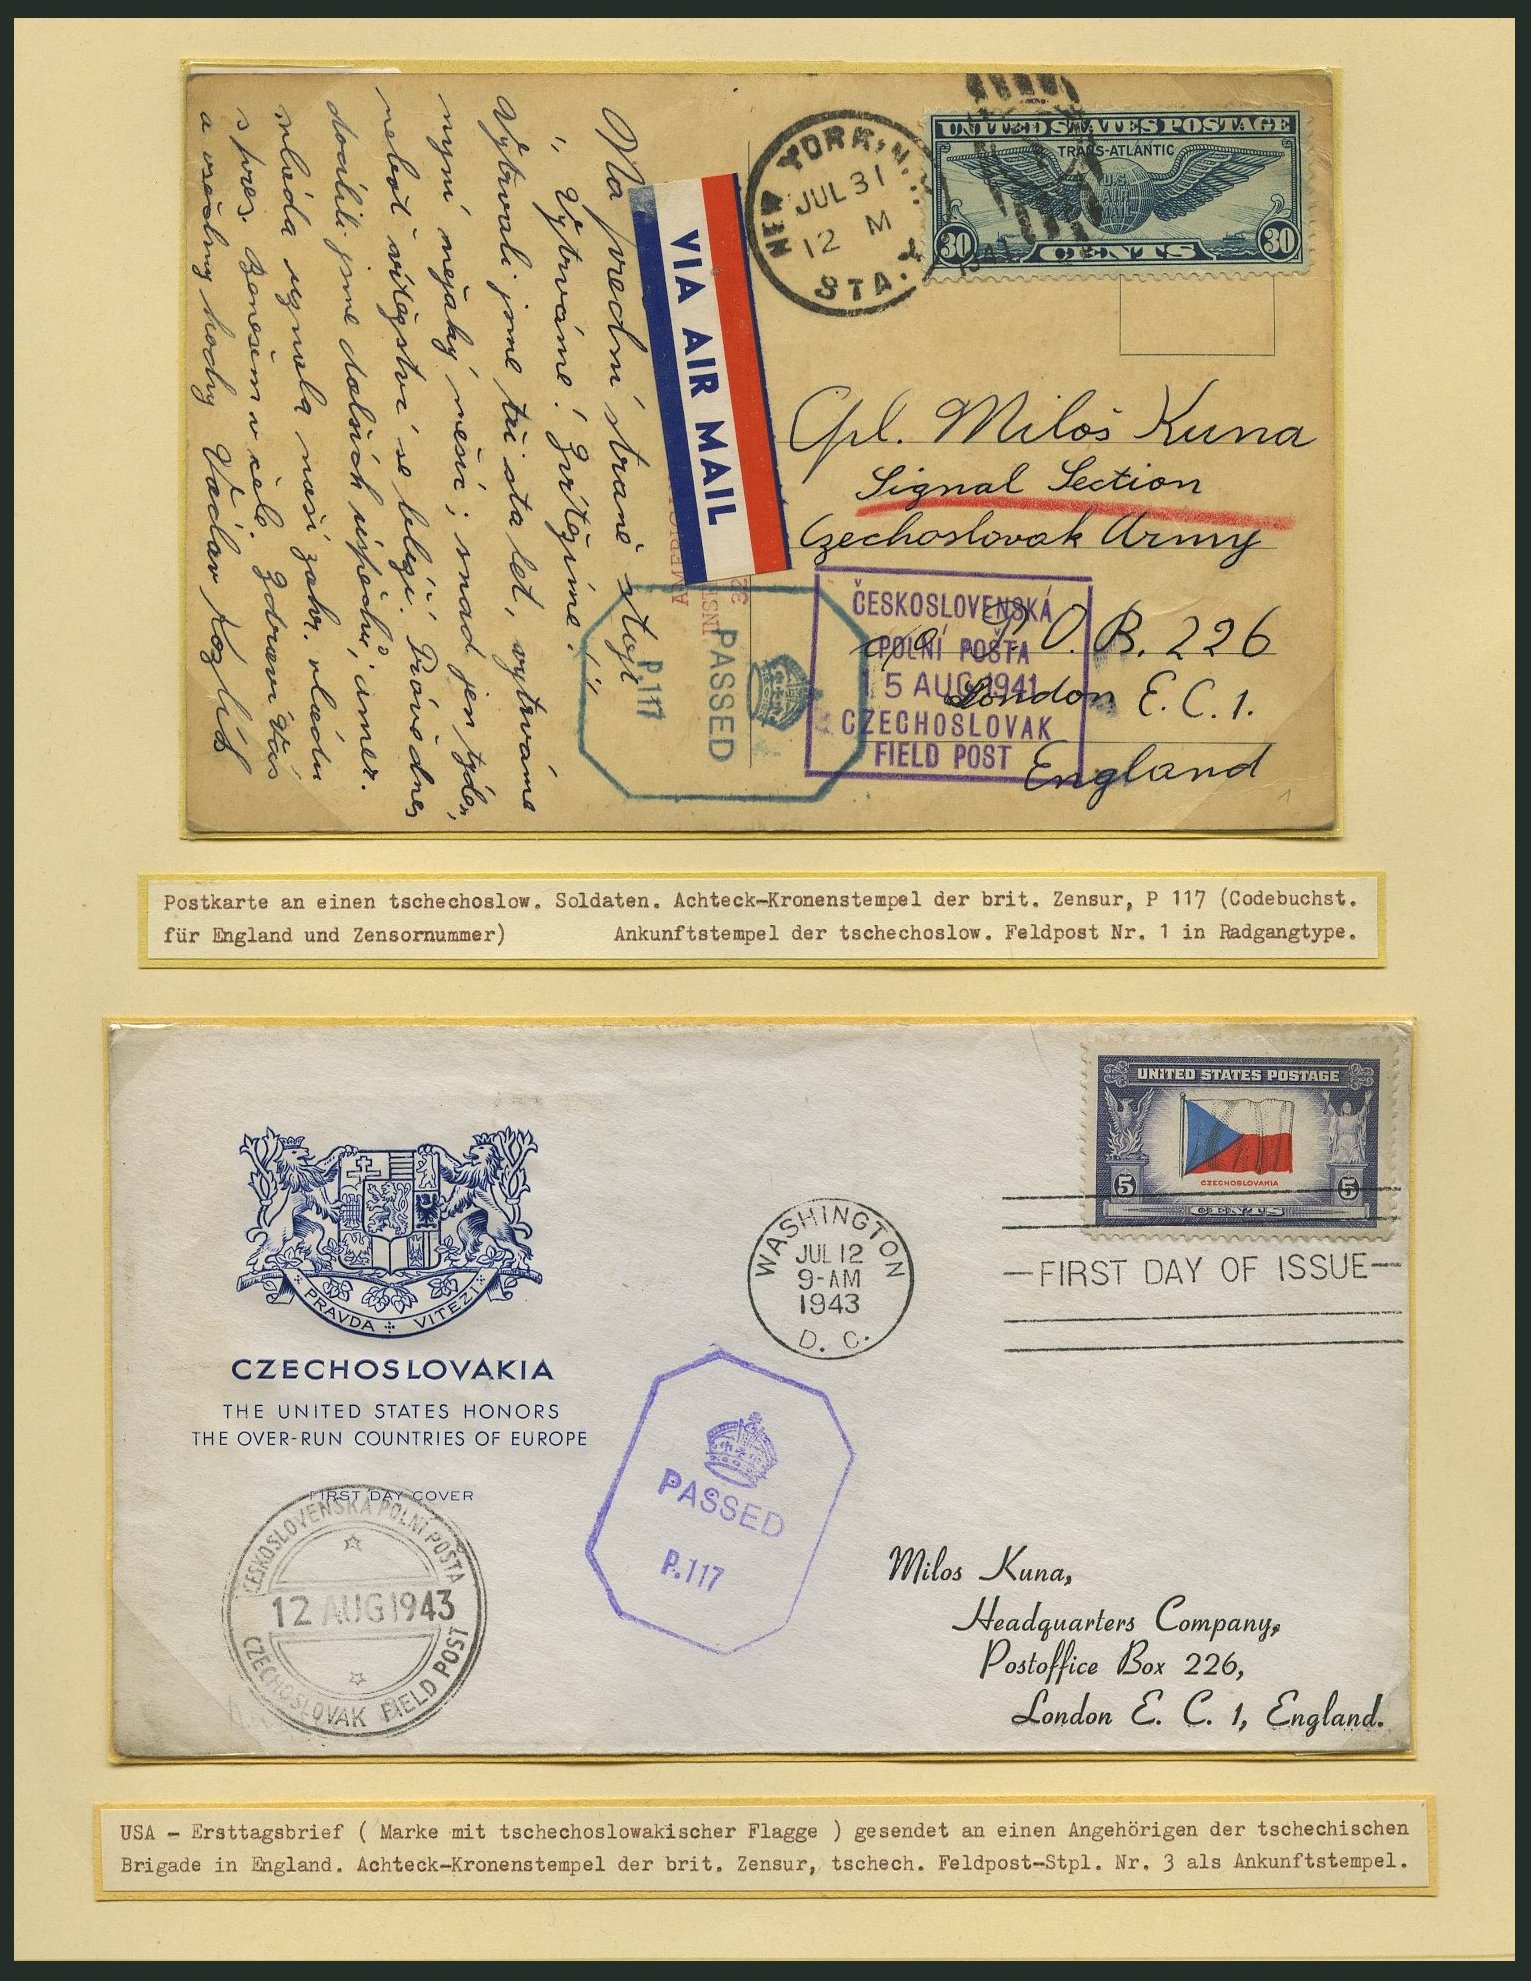 Na přední straně stojí
"Vytrváme! Zvítězíme!"
Vytrvali jsme tři sta let, vytrváme
nyní nějaký měsíc; snad jen týden,
neboť vítězství se blíží. Právě dnes
docílili jsme dalších úspěchů; amer.
vláda uznala naši zahr. vládu
s pres. Benešem v čele. Zdraví Vás
a všechny hochy Václav
VIA AIR MAIL
NEW YORK, N.
JUL 31
12 M
STA.
1941
UNITED STATES POSTAGE
TRANS-ATLANTIC
U.S.
AIR
MAIL
30 CENTS 30
Cpl. Miloš Kuna
Signal Section
Czechoslovak Army
c/o P.O.B. 226
London E.C.1.
England
PASSED
P.117
ČESKOSLOVENSKÁ
POLNÍ POŠTA
5 AUG 1941
CZECHOSLOVAK
FIELD POST
1
Postkarte an einen tschechoslow. Soldaten. Achteck-Kronenstempel der brit. Zensur, P 117 (Codebuchst.
für England und Zensornummer) Ankunftstempel der tschechoslow. Feldpost Nr. 1 in Radgangtype.
UNITED STATES POSTAGE
CZECHOSLOVAKIA
5 CENTS 5
WASHINGTON
JUL 12
9-AM
1943
D. C.
FIRST DAY OF ISSUE
PRAVDA VITEZI
CZECHOSLOVAKIA
THE UNITED STATES HONORS
THE OVER-RUN COUNTRIES OF EUROPE
FIRST DAY COVER
ČESKOSLOVENSKÁ POLNÍ POŠTA
12 AUG 1943
CZECHOSLOVAK FIELD POST
PASSED
P.117
Milos Kuna,
Headquarters Company,
Postoffice Box 226,
London E. C. 1, England.
USA - Ersttagsbrief ( Marke mit tschechoslowakischer Flagge ) gesendet an einen Angehörigen der tschechischen
Brigade in England. Achteck-Kronenstempel der brit. Zensur, tschech. Feldpost-Stpl. Nr. 3 als Ankunftstempel.